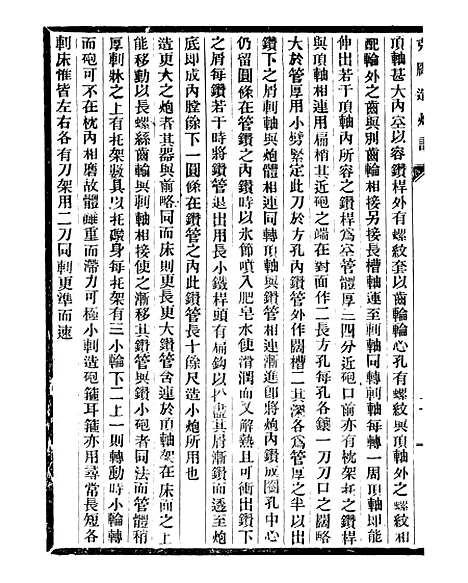 頂軸甚大內空以容鑽桿外有螺紋套以齒輪輪心孔有螺紋與頂軸之螺紋相
配輪外之齒與別齒輪相接另接長槽軸連至剌軸同轉剌軸每轉一周頂軸即能
伸出若干頂軸內所容之鑽桿爲空管體厚三四分近砲口前亦有枕架托之鑽桿
與頂軸相連用扁梢其近砲之端在對面作二長方孔每孔各鑲一刀刀口之闊略
大於管厚用小劈緊定此刀於方孔內鑽管外作闊槽二其深各爲管厚之半以出
鑽下之屑剌軸與炮體相連同轉頂軸與鑽管相連漸進即將炮內鑽成圓孔中心
仍留圓條在鑽管之內鑽時以水節噴入肥皂水使滑潤而又解熱且可衝出鑽下
之屑每鑽若干時將鑽管退出用長小鐵桿頭有扁鈎以扒盡其屑漸鑽而透至炮
底即成內膛餘下一圓條在鑽管之內此鑽管長十餘尺造小炮所用也
造更大之炮者其器與前略同而床則更長更大鑽管含連於頂軸架在床面之上
能移動以長螺絲齒輪與剌軸相接使之漸移其鑽管與鑽小砲者同法而管體稍
厚剌牀之上有托架數具以托礮身每托架有三小輪下二上一則轉動時小輪轉
而砲可不在枕內相磨故體雖重而滯力可極小剌造砲箍耳箍亦用尋常長短各
剌床惟皆左右各有刀架用二刀同剌更準而速